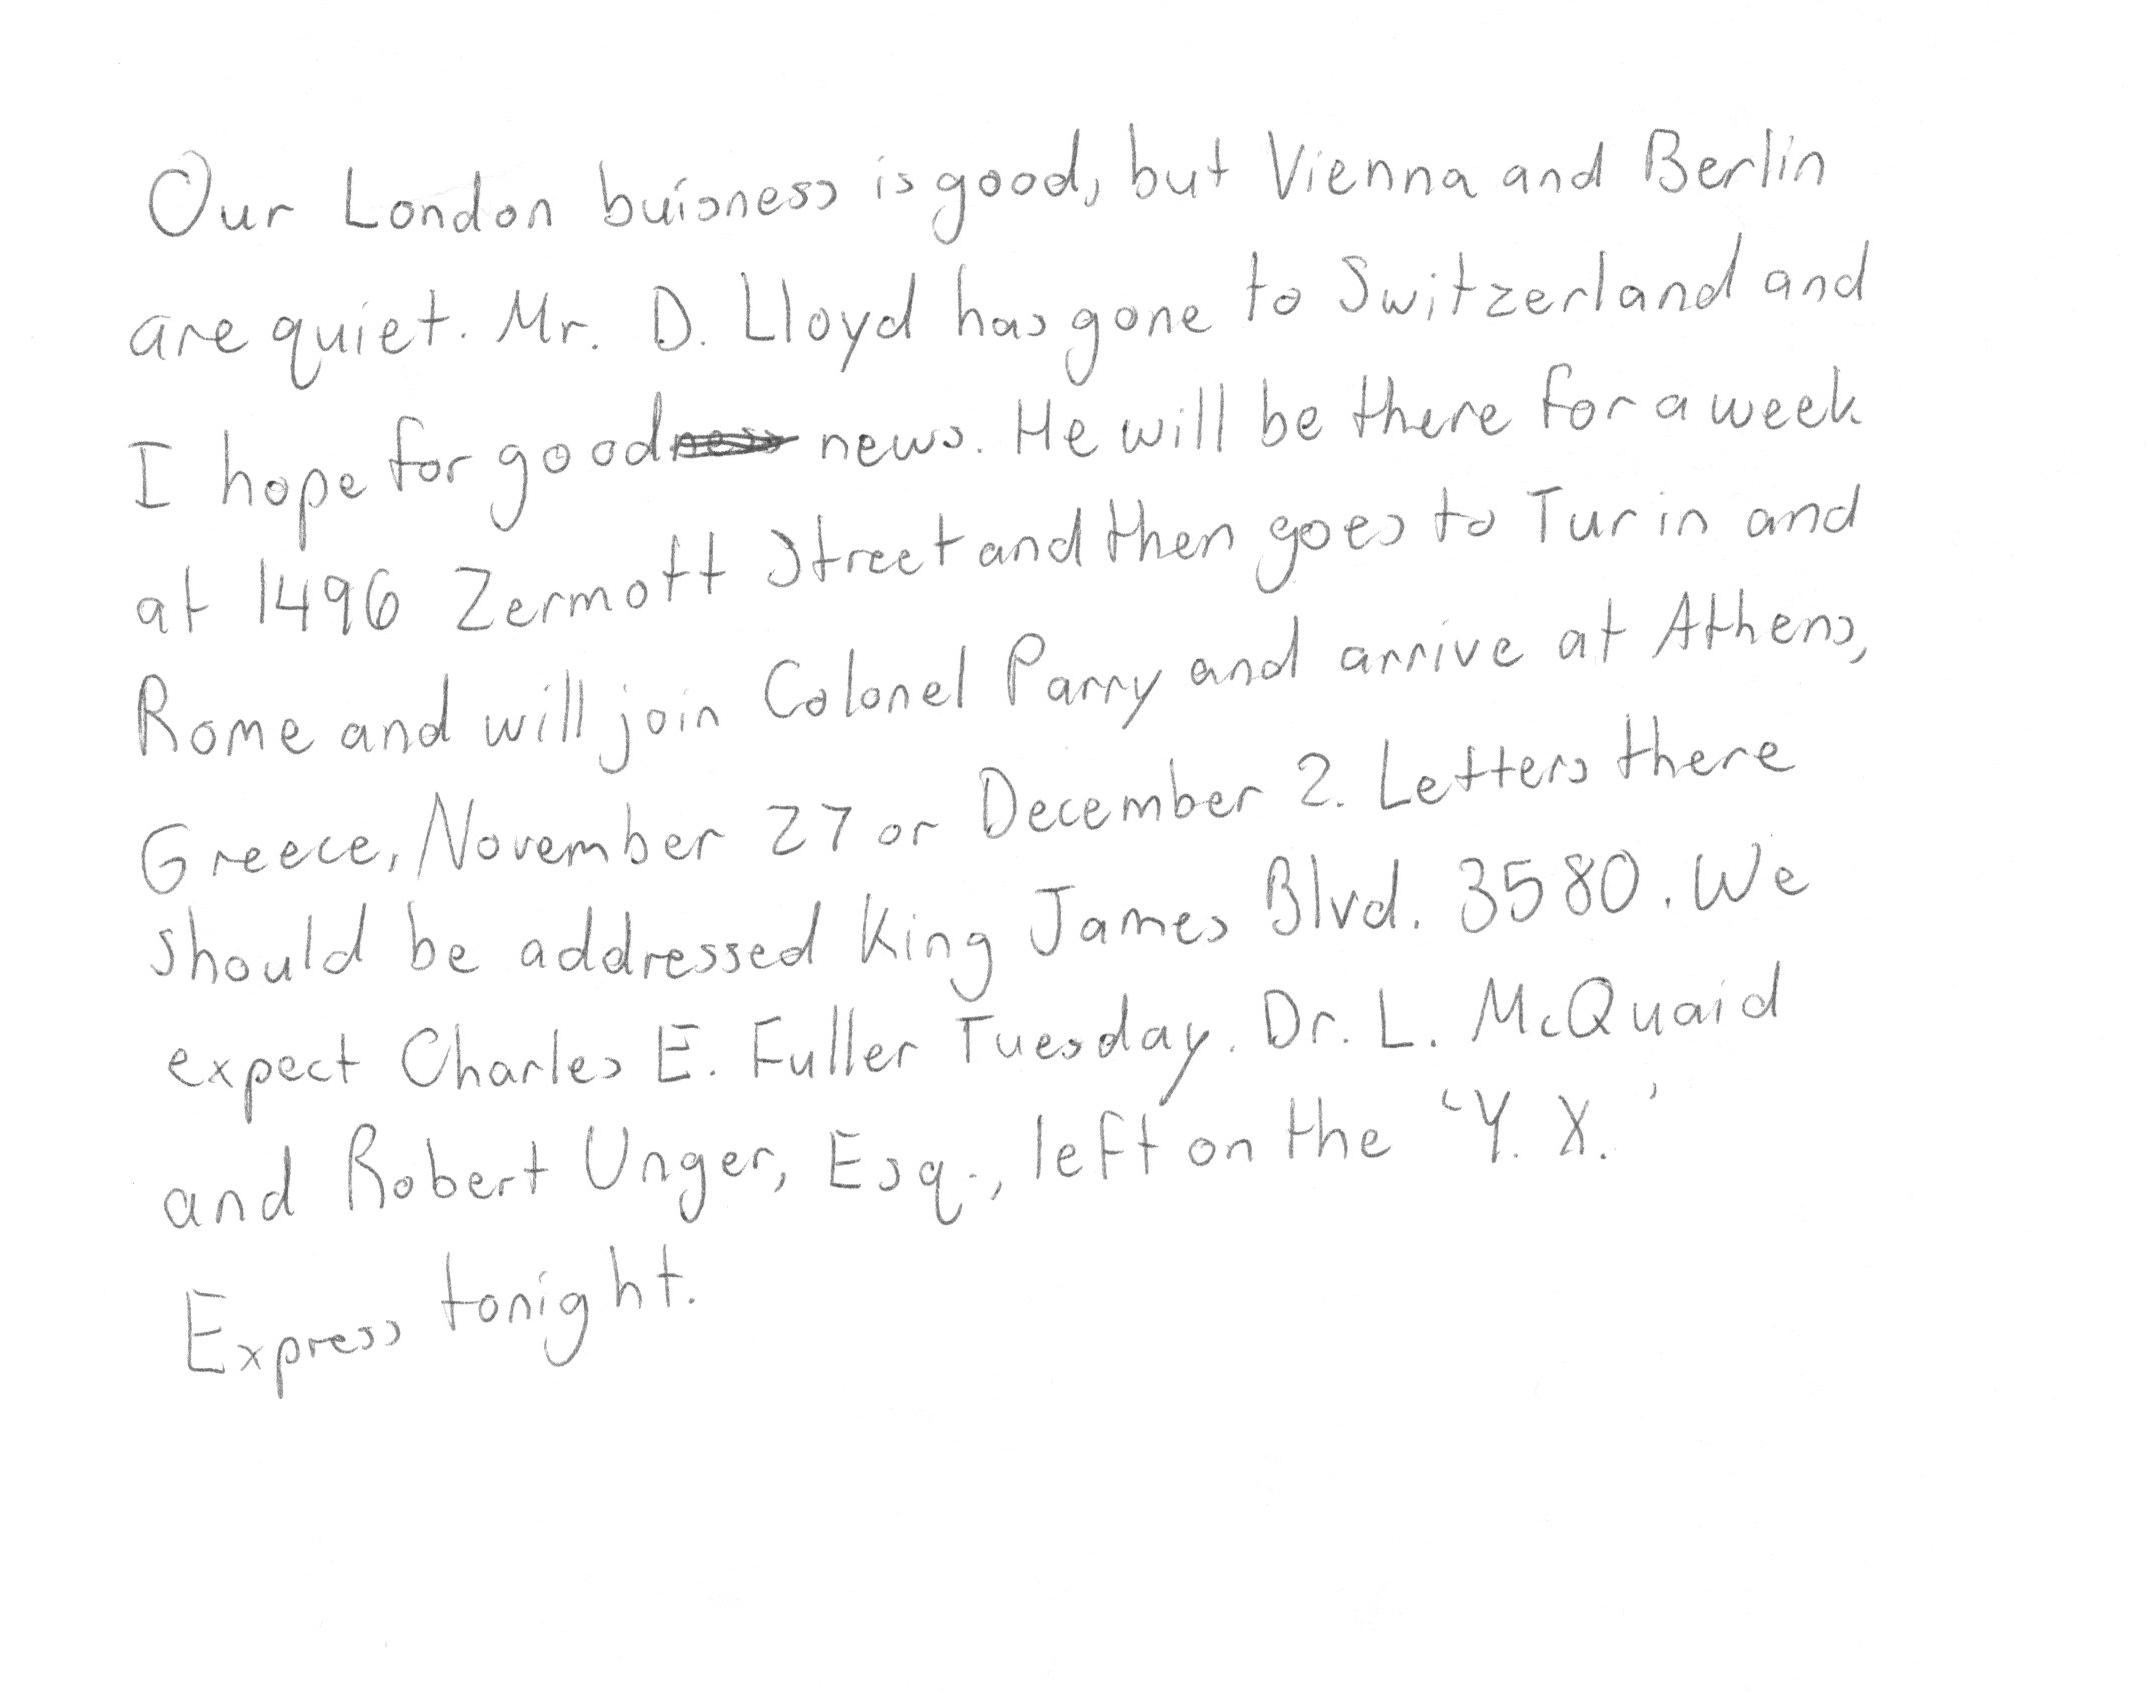 Our London buisness is good, but Vienna and Berlin
are quiet. Mr. D. Lloyd has gone to Switzerland and
I hope for good news. He will be there for a week
at 1496 Zermott Street and then goes to Turin and
Rome and will join Colonel Parry and arrive at Athens,
Greece, November 27 or December 2. Letters there
should be addressed King James Blvd. 3580. We
expect Charles E. Fuller Tuesday. Dr. L. McQuaid
and Robert Unger, Esq., left on the 'Y. X.'
Express tonight.